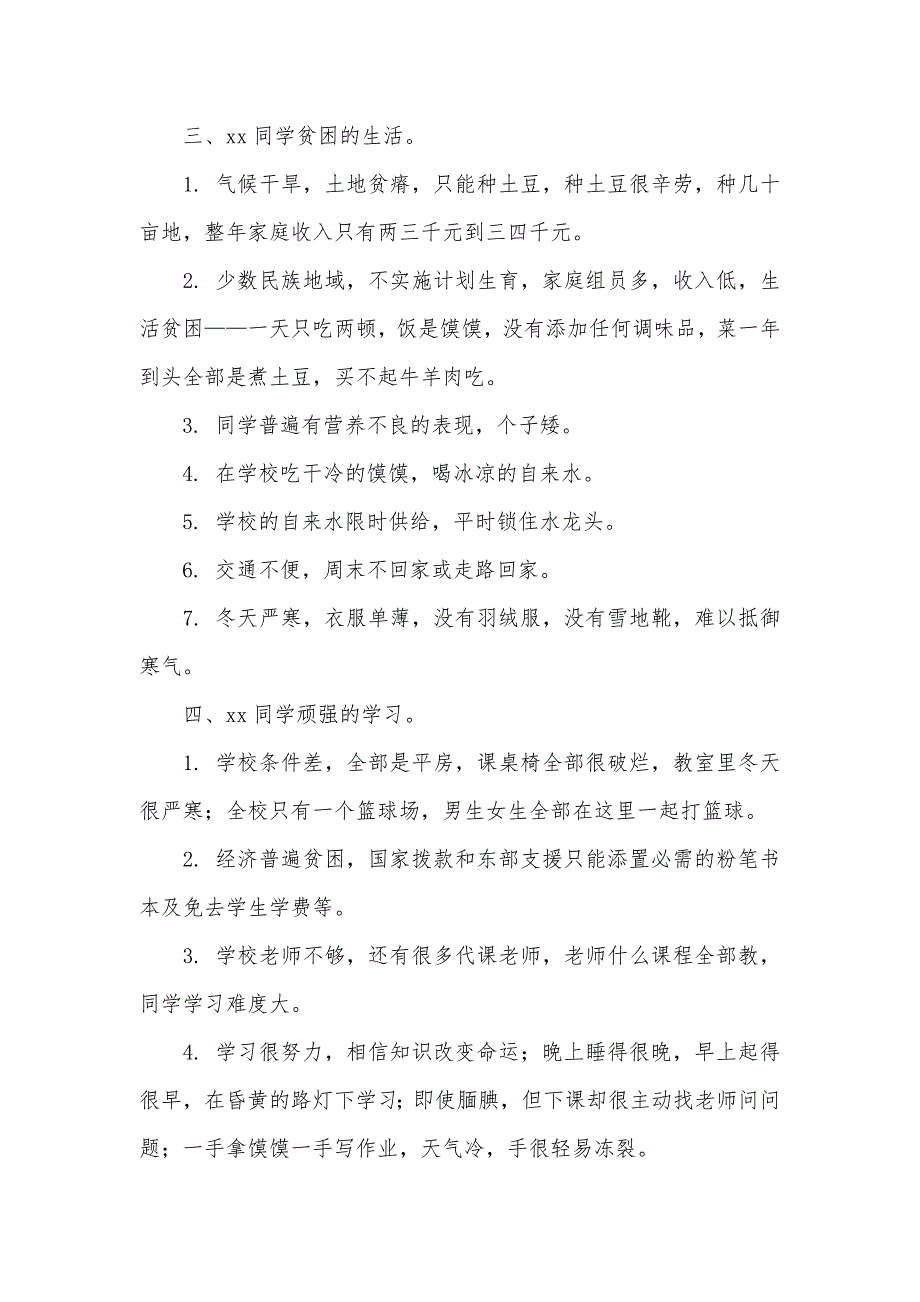 三、xx 同学贫困的生活。
1. 气候干旱，土地贫瘠，只能种土豆，种土豆很辛劳，种几十
亩地，整年家庭收入只有两三千元到三四千元。
2. 少数民族地域，不实施计划生育，家庭组员多，收入低，生
活贫困——一天只吃两顿，饭是馍馍，没有添加任何调味品，菜一年
到头全部是煮土豆，买不起牛羊肉吃。
3. 同学普遍有营养不良的表现，个子矮。
4. 在学校吃干冷的馍馍，喝冰凉的自来水。
5. 学校的自来水限时供给，平时锁住水龙头。
6. 交通不便，周末不回家或走路回家。
7. 冬天严寒，衣服单薄，没有羽绒服，没有雪地靴，难以抵御
寒气。
四、xx 同学顽强的学习。
1. 学校条件差，全部是平房，课桌椅全部很破烂，教室里冬天
很严寒；全校只有一个篮球场，男生女生全部在这里一起打篮球。
2. 经济普遍贫困，国家拨款和东部支援只能添置必需的粉笔书
本及免去学生学费等。
3. 学校老师不够，还有很多代课老师，老师什么课程全部教，
同学学习难度大。
4. 学习很努力，相信知识改变命运；晚上睡得很晚，早上起得
很早，在昏黄的路灯下学习；即使腼腆，但下课却很主动找老师问问
题；一手拿馍馍一手写作业，天气冷，手很轻易冻裂。